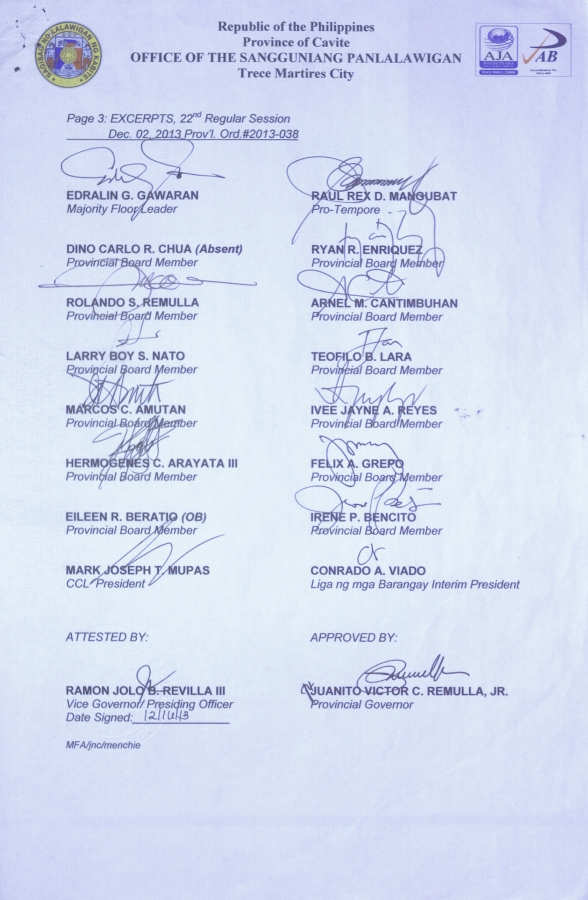 Republic of the Philippines
Province of Cavite
OFFICE OF THE SANGGUNIANG PANLALAWIGAN
Trece Martires City
AJA
AB
Page 3: EXCERPTS, 22nd Regular Session
Dec. 02, 2013 Prov'l. Ord.#2013-038
EDRALIN G. GAWARAN
Majority Floor Leader
RAUL REX D. MANGUBAT
Pro-Tempore
DINO CARLO R. CHUA (Absent)
Provincial Board Member
RYAN R. ENRIQUEZ
Provincial Board Member
ROLANDO S. REMULLA
Provincial Board Member
ARNEL M. CANTIMBUHAN
Provincial Board Member
LARRY BOY S. NATO
Provincial Board Member
TEOFILO B. LARA
Provincial Board Member
MARCOS C. AMUTAN
Provincial Board Member
IVEE JAYNE A. REYES
Provincial Board Member
HERMOGENES C. ARAYATA III
Provincial Board Member
FELIX A. GREPO
Provincial Board Member
EILEEN R. BERATIO (OB)
Provincial Board Member
IRENE P. BENCITO
Provincial Board Member
MARK JOSEPH T. MUPAS
CCL President
CONRADO A. VIADO
Liga ng mga Barangay Interim President
ATTESTED BY:
APPROVED BY:
RAMON JOLO B. REVILLA III
Vice Governor/ Presiding Officer
Date Signed: 12/16/13
JUANITO VICTOR C. REMULLA, JR.
Provincial Governor
MFA/jnc/menchie